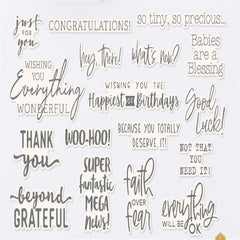 just
for
you
CONGRATULATIONS!
so tiny, so precious...
Babies
are a
Blessing
hey, there!
what's new?
WISHING
YOU
Everything
WONDERFUL
WISHING YOU THE
Happiest OF Birthdays
Good
Luck!
THANK
you
WOO-HOO!
BECAUSE YOU TOTALLY
DESERVE IT!
NOT THAT
YOU NEED IT!
SUPER
fantastic
MEGA
news!
faith
OVER
fear
beyond
GRATEFUL
everything
WILL BE OK